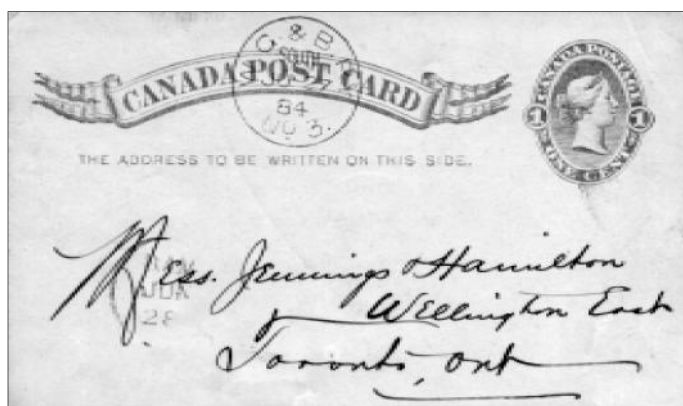 G. & B.
SOUTH
84
No 3.
CANADA POST CARD
CANADA POSTAGE
1 1
ONE CENT
THE ADDRESS TO BE WRITTEN ON THIS SIDE.
Mess. Jennings & Hamilton
Wellington East
Toronto, Ont
28